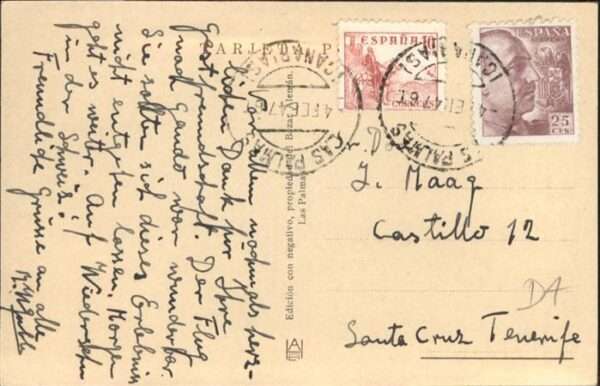 TARJETA P
allen nochmals herz-
lichen Dank für Ihre
Gastfreundschaft. Der Flug
nach Gando war wunderbar.
Sie sollten sich dieses Erlebnis
nicht entgehen lassen. Morgen
geht es weiter. Auf Wiedersehn
in der Schweiz!
Freundliche Grüsse an alle
Edición con negativo, propiedad del Bazar Alemán.
Las Palmas
ESPAÑA 10
CORREOS
ESPAÑA
CORREOS
25
CTS
LAS PALMAS
4 FEB 47
(CANARIAS)
LAS PALMAS
(CANARIAS)
J. Maag
Castillo 12
D4
Santa Cruz Tenerife